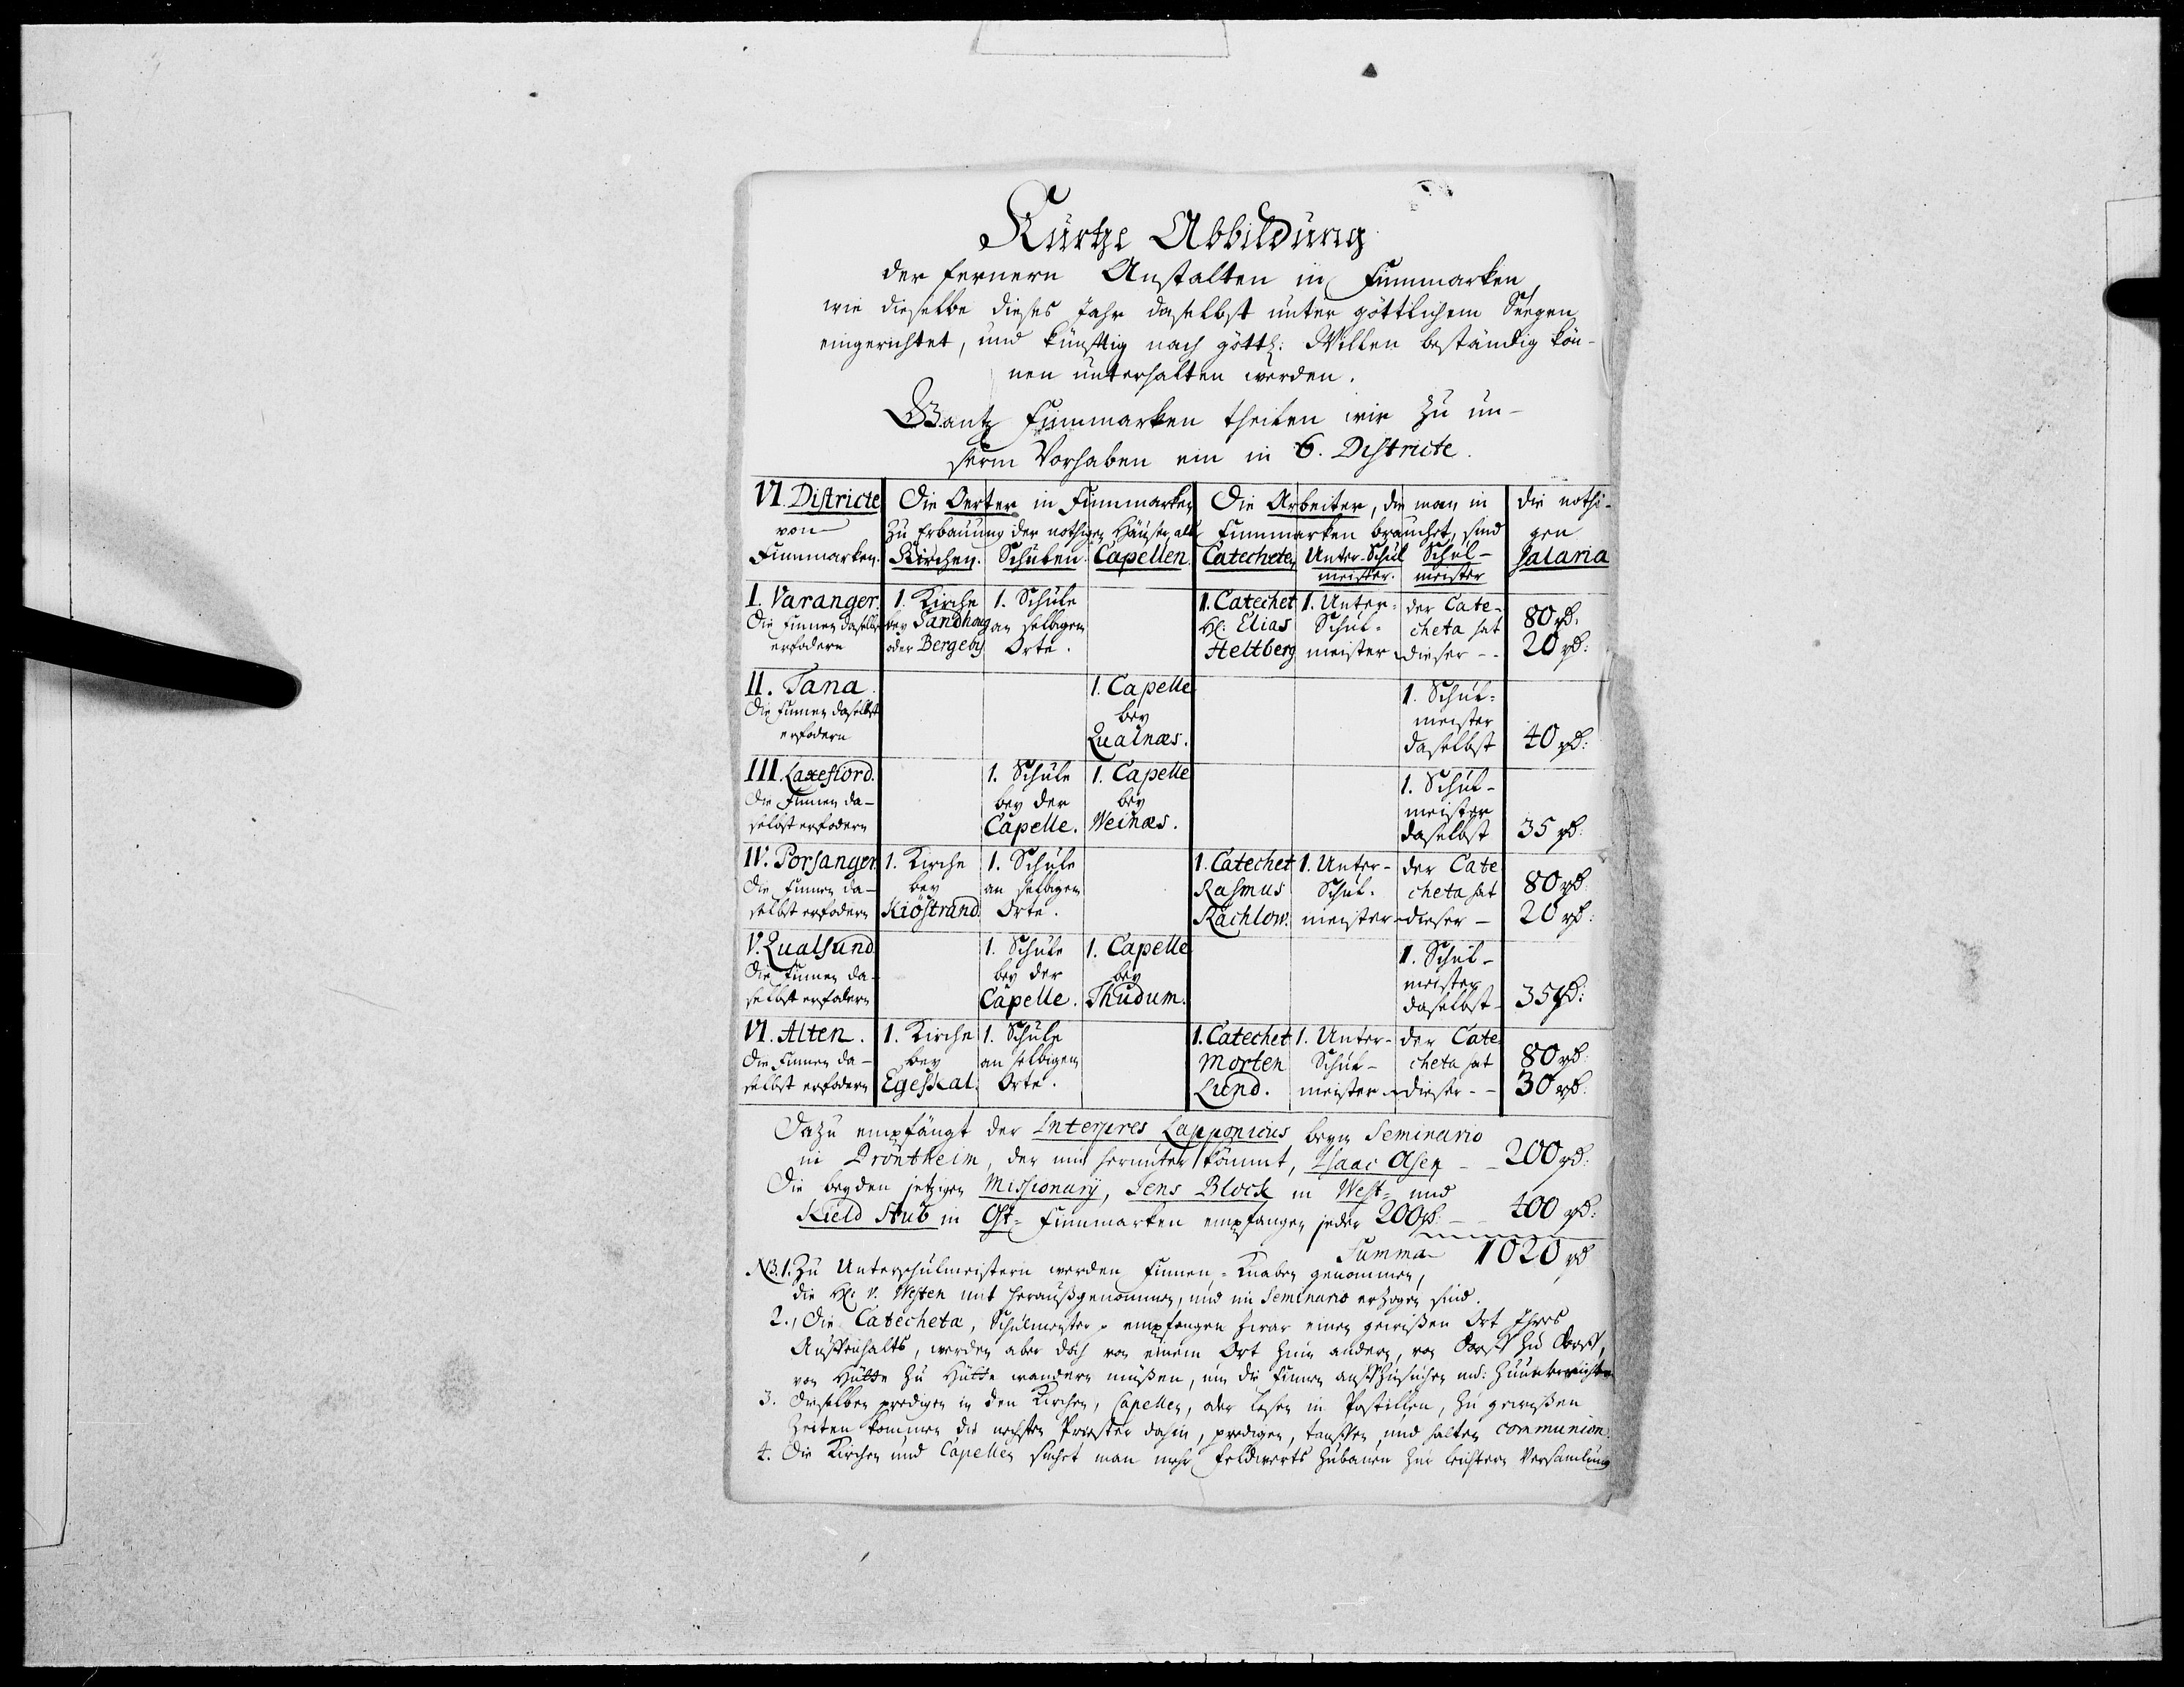 Kurtze Abbildung
der fernern Anstalten in Finnmarken,
wie dieselbe dieses Jahr daselbst unter göttlichem Seegen
eingerichtet, und künfftig nach göttl: Willen beständig kön-
nen unterhalten werden.
Gantz Finnmarken theilen wir zu un-
serm Vorhaben ein in 6. Districte.
VI. Districte von Finnmarken.
Die Oerter in Finnmarken zu Erbauung der nothigen Häuser, als
Kirchen. Schulen. Capellen.
Die Arbeiter, die man in Finnmarken brauchet, sind
Catecheten Unter-Schul meister. Schul- meister
die nothi- gen Salaria
I. Varanger. Die Finnen daselbst erfodern
1. Kirche bey Sandhoug oder Bergeby
1. Schule an selbigen Orte.
1. Catechet H: Elias Heltberg
1. Unter- Schul- meister
der Cate- cheta hat 80 rd:
dieser -- 20 rd:
II. Tana. Die Finnen daselbst erfodern
1. Capelle bey Qualnæs.
1. Schul- meister daselbst
40 rd:
III. Laxefiord. Die Finnen da- selbst erfodern
1. Schule bey der Capelle.
1. Capelle bey Weinæs.
1. Schul- meister daselbst
35 rd:
IV. Porsanger. Die Finnen da- selbst erfodern
1. Kirche bey Kiöstrand
1. Schule an selbigen Orte.
1. Catechet Rasmus Rachlow.
1. Unter- Schul- meister
der Cate cheta hat 80 rd:
dieser - 20 rd:
V. Qualsund Die Finnen da- selbst erfodern
1. Schule bey der Capelle.
1. Capelle bey Thudum.
1. Schul- meister daselbst
35 rd:
VI. Alten. Die Finnen da- selbst erfodern
1. Kirche bey Egeskal.
1. Schule an selbigen Orte.
1. Catechet Morten Lund.
1. Unter- Schul- meister
der Cate cheta hat 80 rd:
dieser -- 30 rd:
Dazu empfängt der Interpres Lapponicus beym Seminario
in Drontheim, der mit herunter kömmt, Isaac Olsen - - 200 rd:
Die beyden jetzigen Missionarij, Jens Block in West- und
Kield Stub in Ost- Finnmarken empfangen jeder 200 rd: - - 400 rd:
Summa 1020 rd
NB. 1. Zu Unterschulmeistern werden Finnen-Knaben genommen,
die H: v. Westen mit heraußgenommen, und im Seminario erzogen sind.
2., Die Catecheta, Schulmeister empfangen zwar einen gewißen Ort Ihres
Auffenthalts, werden aber doch von einem Ort zum andern, von Dorff zu Dorff,
von Hütte zu Hütte wandern müßen, um die Finnen auffzusuchen und: zu unterrichten
3. Dieselben predigen in den Kirchen, Capellen, oder lesen in Postillen, zu gewißen
Zeiten kommen die nechsten Priester dahin, predigen, tauffen und halten communion.
4. Die Kirchen und Capellen suchet man mehr Feldwerts zubauen zur leichtern Versamlung